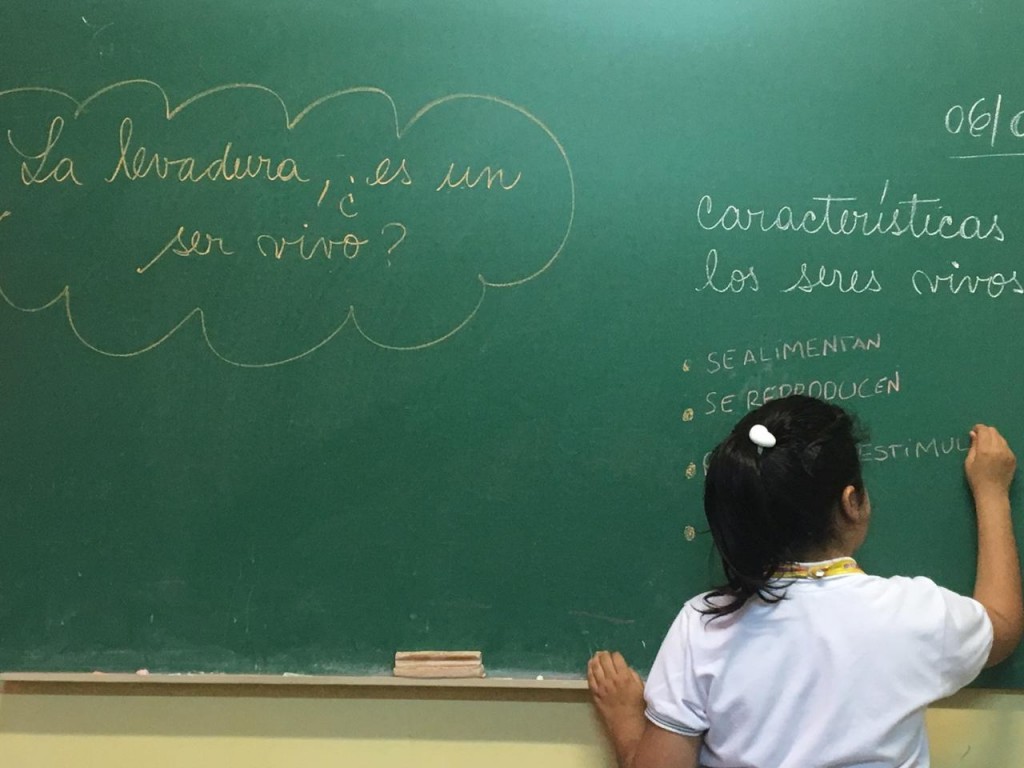 La levadura, ¿es un
ser vivo?
06/0
características
los seres vivos
SE ALIMENTAN
SE REPRODUCEN
ESTIMUL